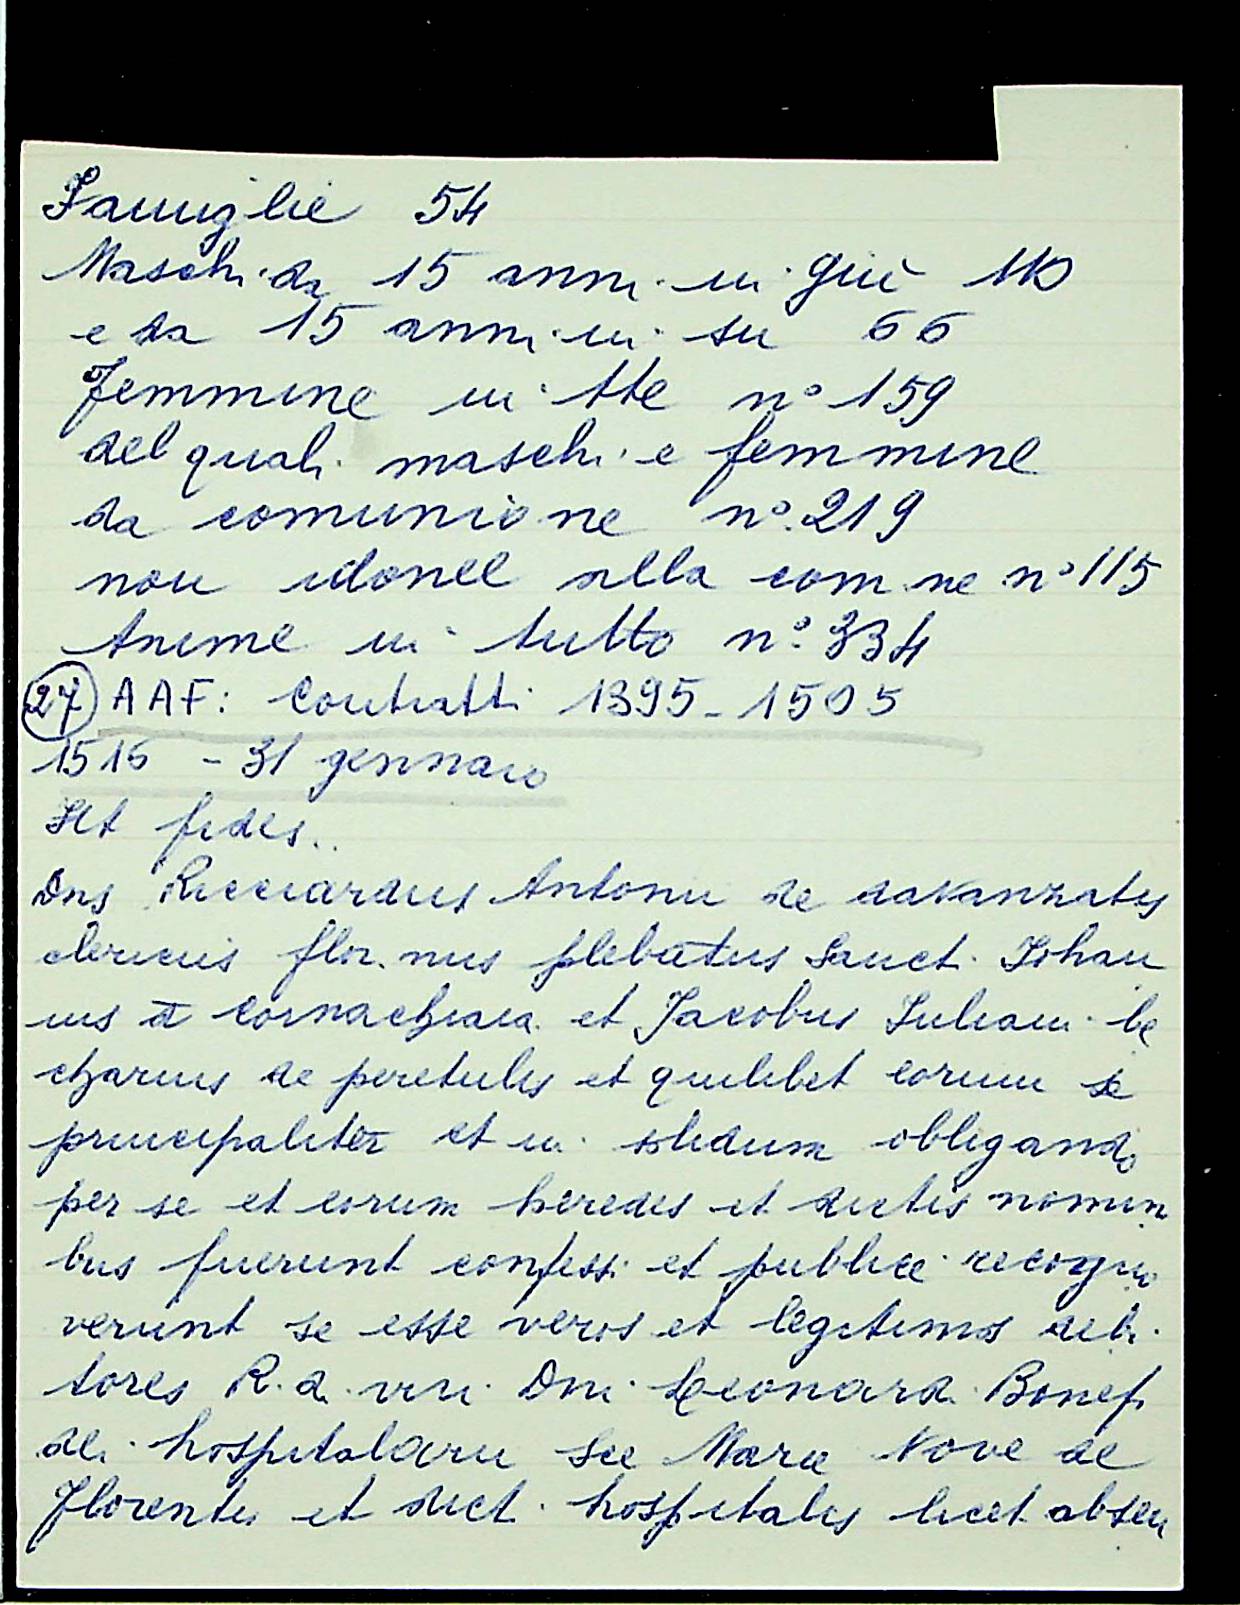 Famiglie 54
Maschi da 15 anni in giù 110
e da 15 anni in su 66
femmine in tte n° 159
del quali maschi e femmine
da comunione n°. 219
non idonee alla com.ne n° 115
Anime in tutto n°. 334
27 AAF: Contratti 1395-1505
1516 - 31 gennaio
Sit fides..
Dns Ricciardus Antonii de davanzatis
clericus flor.nus plebatus Sanct. Johan
nis a Cornachiaia et Jacobus Juliani be
charius de peretulis et quilibet eorum se
principaliter et in solidum obligando
per se et eorum heredes et dictis nomin
bus fuerunt confessi et publice recogno
verunt se esse veros et legitimos debi
tores R.d. viri Dni Leonardi Bonef
dei hospitalarii See Marie Nove de
Florentis et dict. hospitalis licet absen